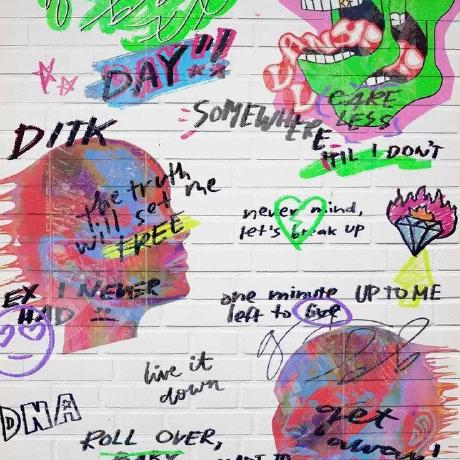 DAY"!!
CARE
LESS
DITK
SOMEWHERE
'TIL I DON'T
the truth
will set me
FREE
never mind,
let's break up
EX I NEVER
HAD
one minute
left to live
UP TO ME
live it
down
DNA
get
away!
ROLL OVER,
BABY